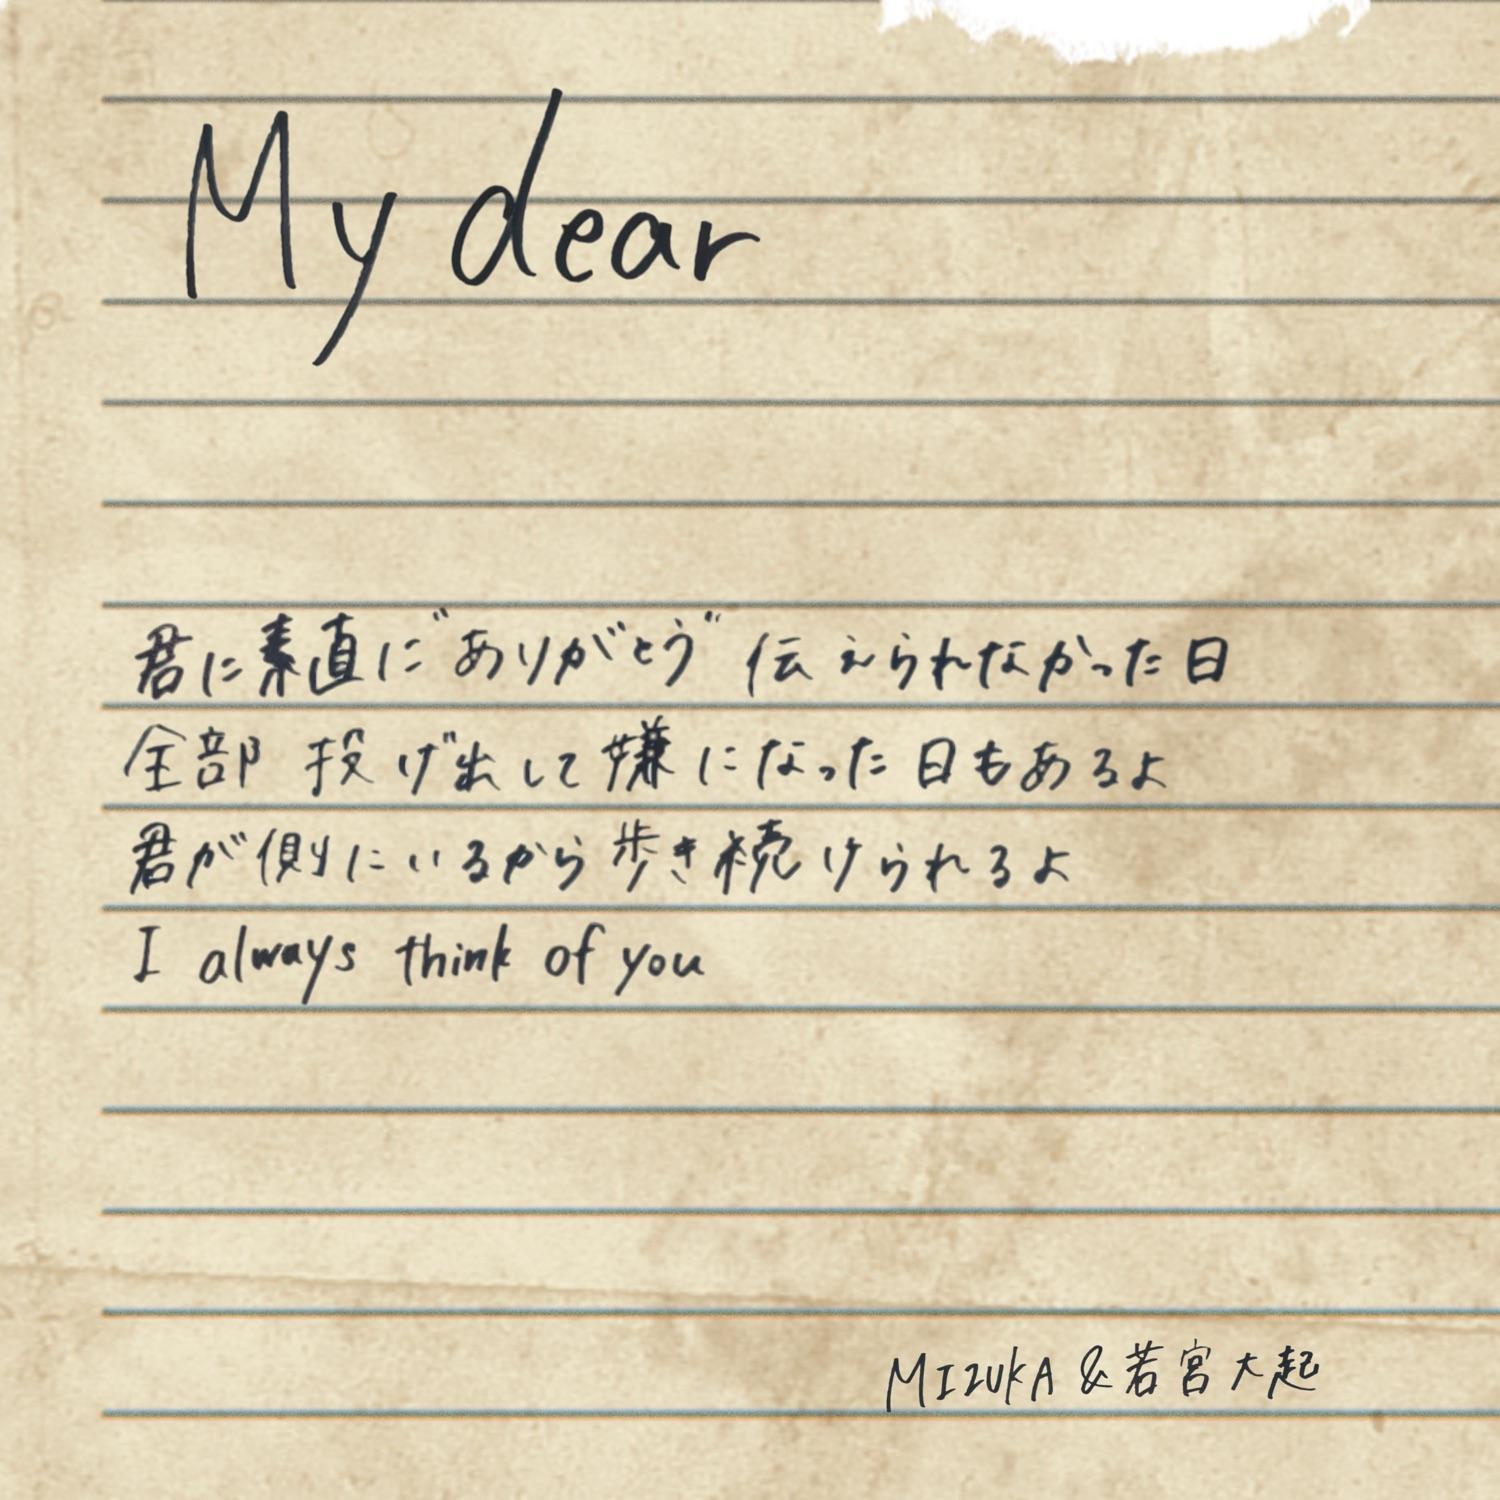 My dear
君に素直に"ありがとう"伝えられなかった日
全部 投げ出して嫌になった日もあるよ
君が側にいるから歩き続けられるよ
I always think of you
MIZUKA & 若宮大起